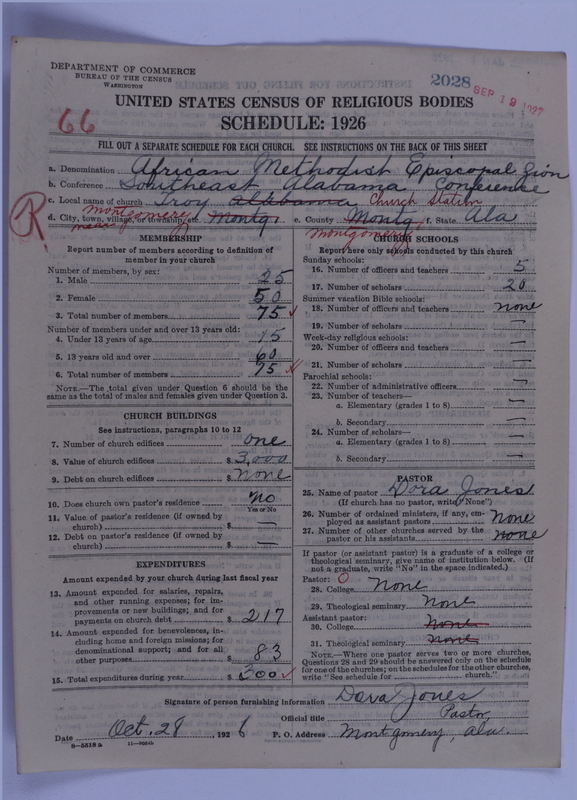 DEPARTMENT OF COMMERCE
BUREAU OF THE CENSUS
WASHINGTON
2028
SEP 19 1927
UNITED STATES CENSUS OF RELIGIOUS BODIES
66
SCHEDULE: 1926
FILL OUT A SEPARATE SCHEDULE FOR EACH CHURCH. SEE INSTRUCTIONS ON THE BACK OF THIS SHEET
a. Denomination African Methodist Episcopal Zion
b. Conference Southeast Alabama Conference
c. Local name of church Troy Alabama Church Station
R d. City, town, village, or township Montgomery Montg. e. County Montg. Montgomery f. State Ala
MEMBERSHIP
Report number of members according to definition of member in your church
Number of members, by sex:
1. Male 25
2. Female 50
3. Total number of members 75
Number of members under and over 13 years old:
4. Under 13 years of age 15
5. 13 years old and over 60
6. Total number of members 75
NOTE.—The total given under Question 6 should be
same as the total of males and females given under Question 3.
CHURCH BUILDINGS
See instructions, paragraphs 10 to 12
7. Number of church edifices one
8. Value of church edifices $ 3,000
9. Debt on church edifices $ none
10. Does church own pastor's residence No
Yes or No
11. Value of pastor's residence (if owned by
church) $ —
12. Debt on pastor's residence (if owned by
church) $ —
EXPENDITURES
Amount expended by your church during last fiscal year
13. Amount expended for salaries, repairs,
and other running expenses; for im-
provements or new buildings, and for
payments on church debt $ 217
14. Amount expended for benevolences, in-
cluding home and foreign missions; for
denominational support; and for all
other purposes $ 83
15. Total expenditures during year $ 300
CHURCH SCHOOLS
Report here only schools conducted by this church
Sunday schools:
16. Number of officers and teachers 5
17. Number of scholars 20
Summer vacation Bible schools:
18. Number of officers and teachers none
19. Number of scholars —
Week-day religious schools:
20. Number of officers and teachers —
21. Number of scholars —
Parochial schools:
22. Number of administrative officers —
23. Number of teachers—
a. Elementary (grades 1 to 8) —
b. Secondary —
24. Number of scholars—
a. Elementary (grades 1 to 8) —
b. Secondary —
PASTOR
25. Name of pastor Dora Jones
(If church has no pastor, write "None")
26. Number of ordained ministers, if any, em-
ployed as assistant pastors None
27. Number of other churches served by the
pastor or his assistants none
If pastor (or assistant pastor) is a graduate of a college or
theological seminary, give name of institution below. (If
not a graduate, write "No" in the space indicated.)
Pastor: O
28. College None
29. Theological seminary None
Assistant pastor:
30. College None
31. Theological seminary None
NOTE.—Where one pastor serves two or more churches,
Questions 28 and 29 should be answered only on the schedule
for one of the churches; on the schedules for the other churches,
write "See schedule for church."
Signature of person furnishing information Dora Jones
Official title Pastor
Date Oct. 28, 1926 P. O. Address Montgomery, Ala.